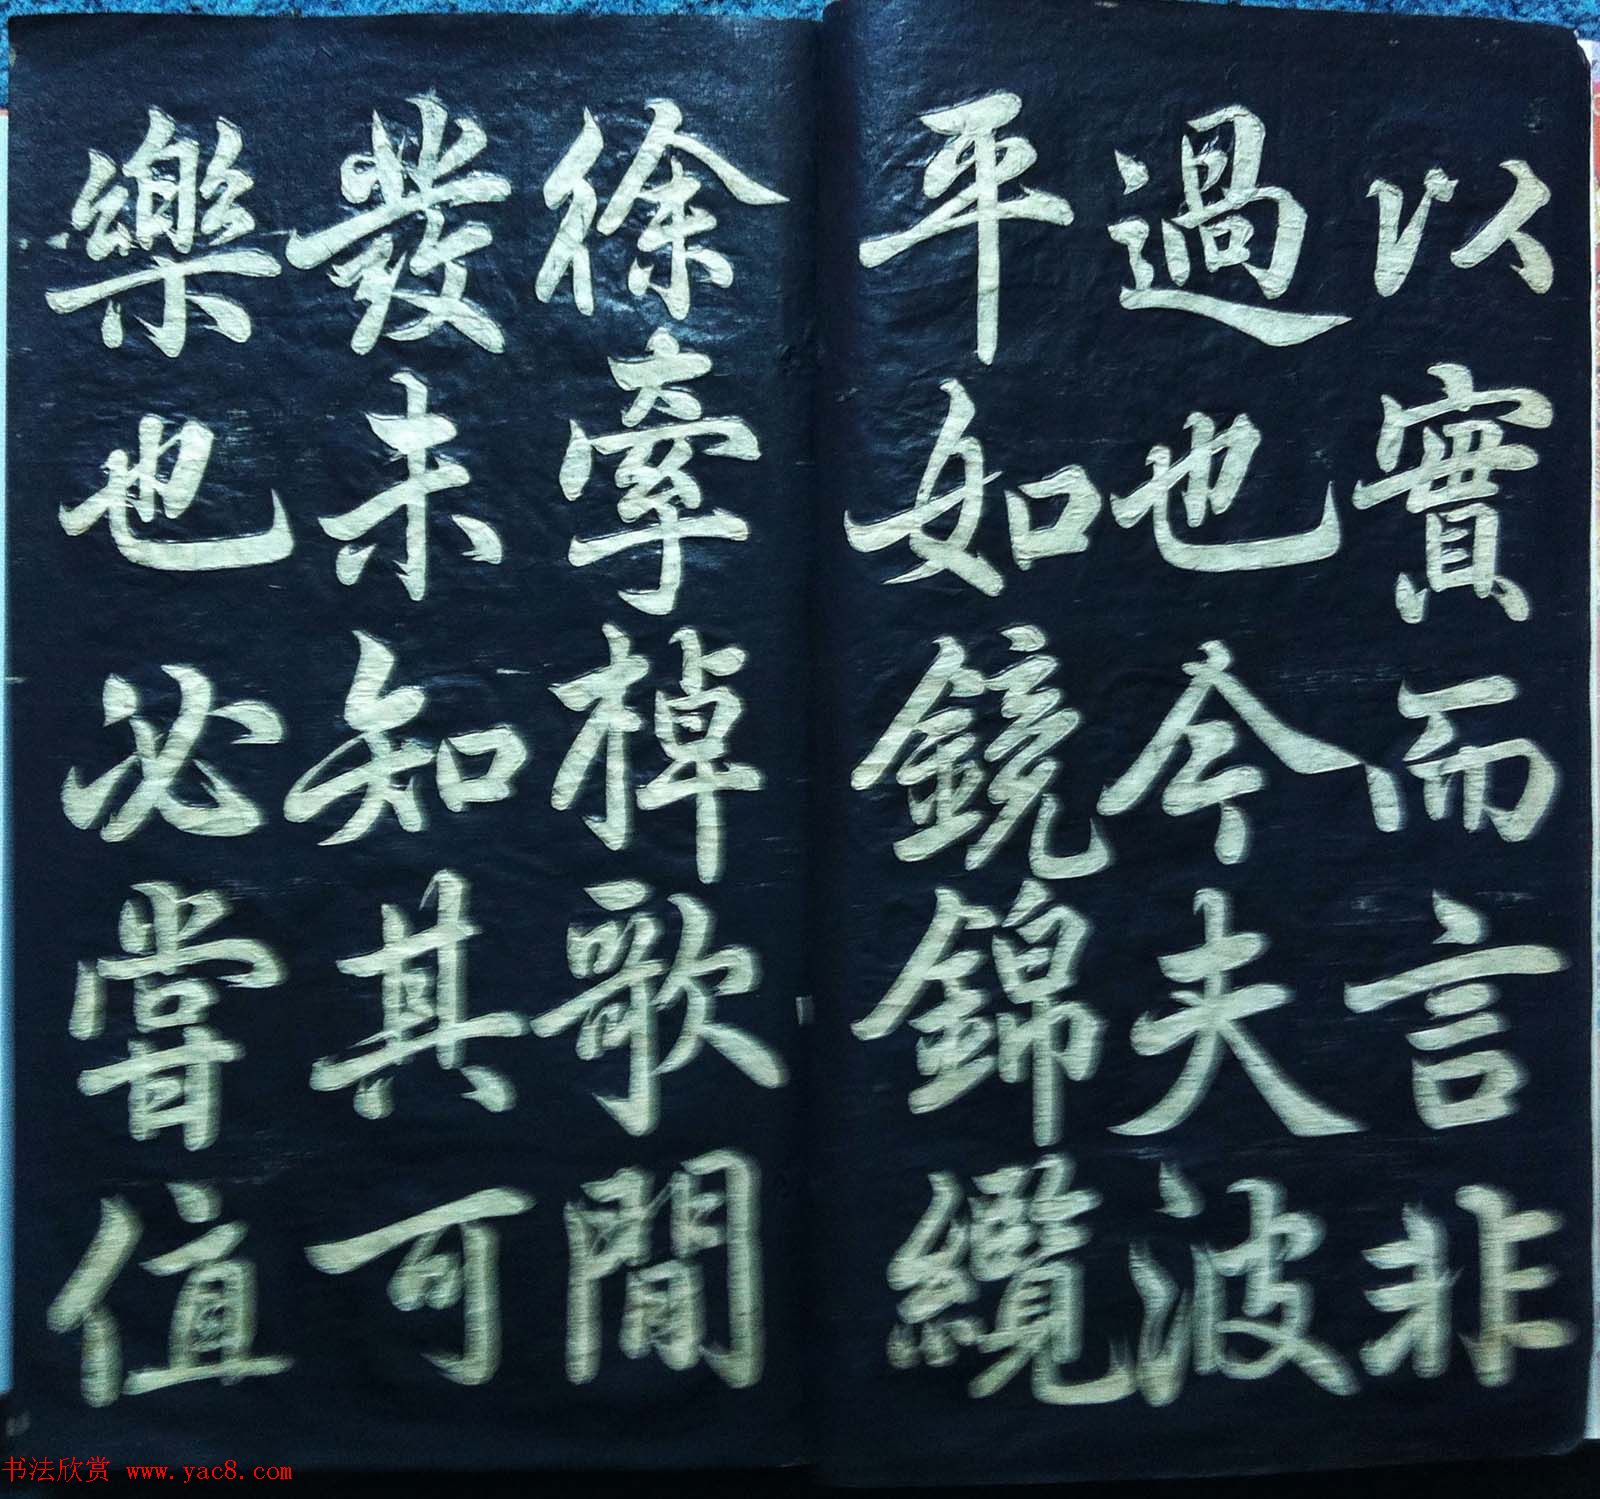 以實而言非
過也今夫波
平如鏡錦纜
徐牽棹歌間
發未知其可
樂也必嘗值
书法欣赏 www.yac8.com